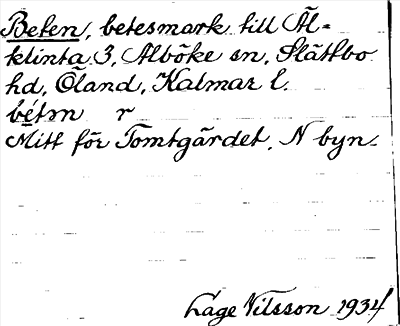 Beten, betesmark till Äl-
klinta 3, Alböke sn, Slättbo
hd, Öland, Kalmar l.
bétən r
Mitt för Tomtgärdet, N byn.
Låge Nilsson 1934